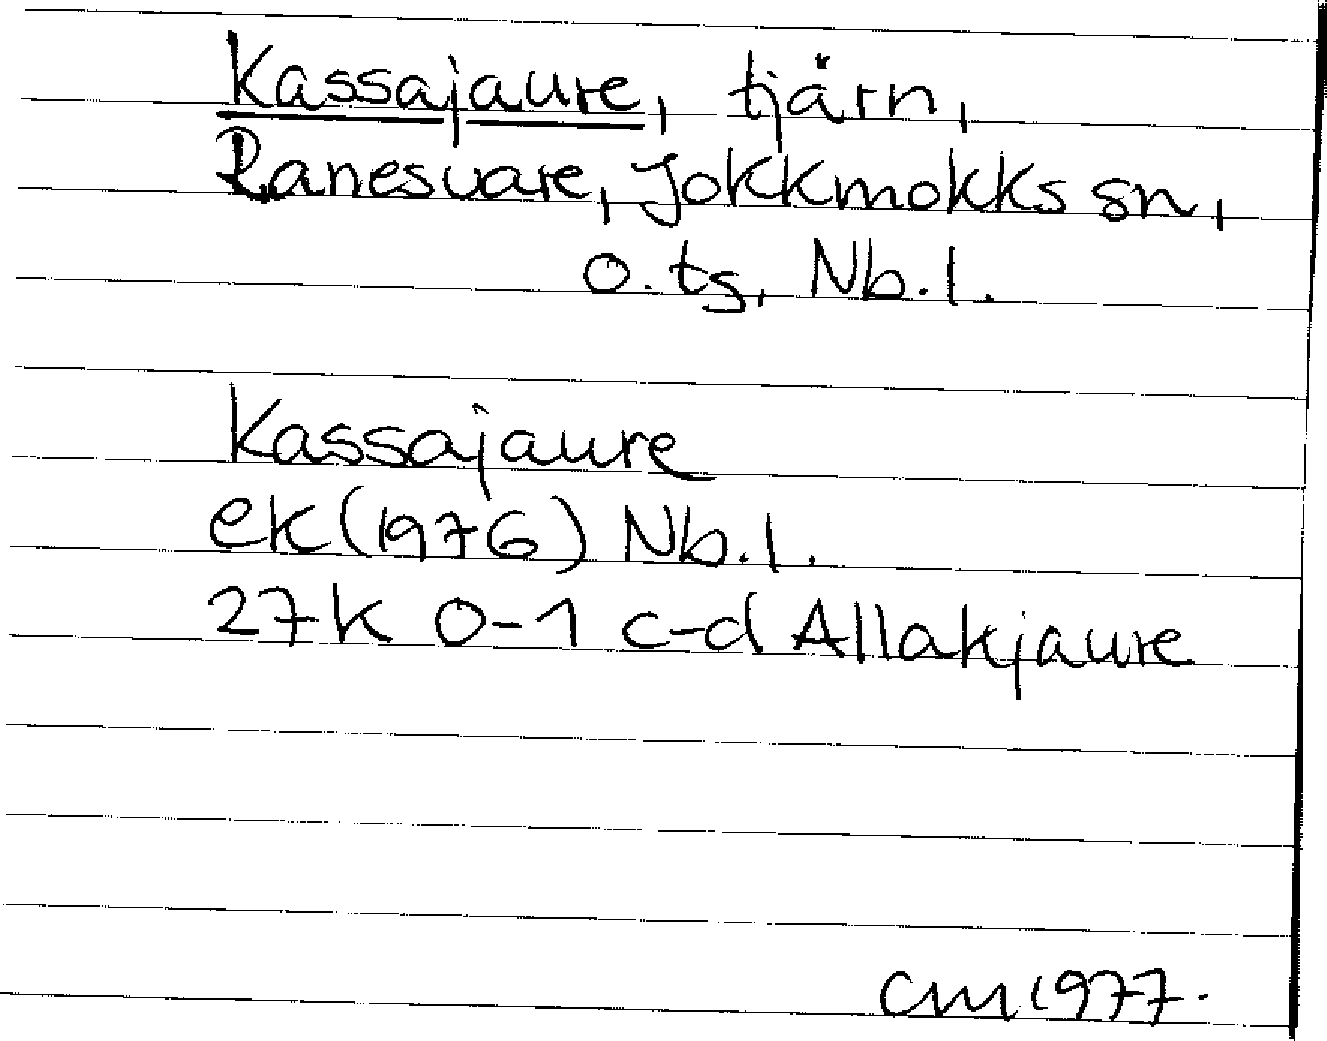 Kassajaure, tjärn,
Ranesvare, Jokkmokks sn,
o. ts, Nb.l.
Kassajaure
ek (1976) Nb.l.
27K 0-1 c-d Allakjaure
CM 1977.